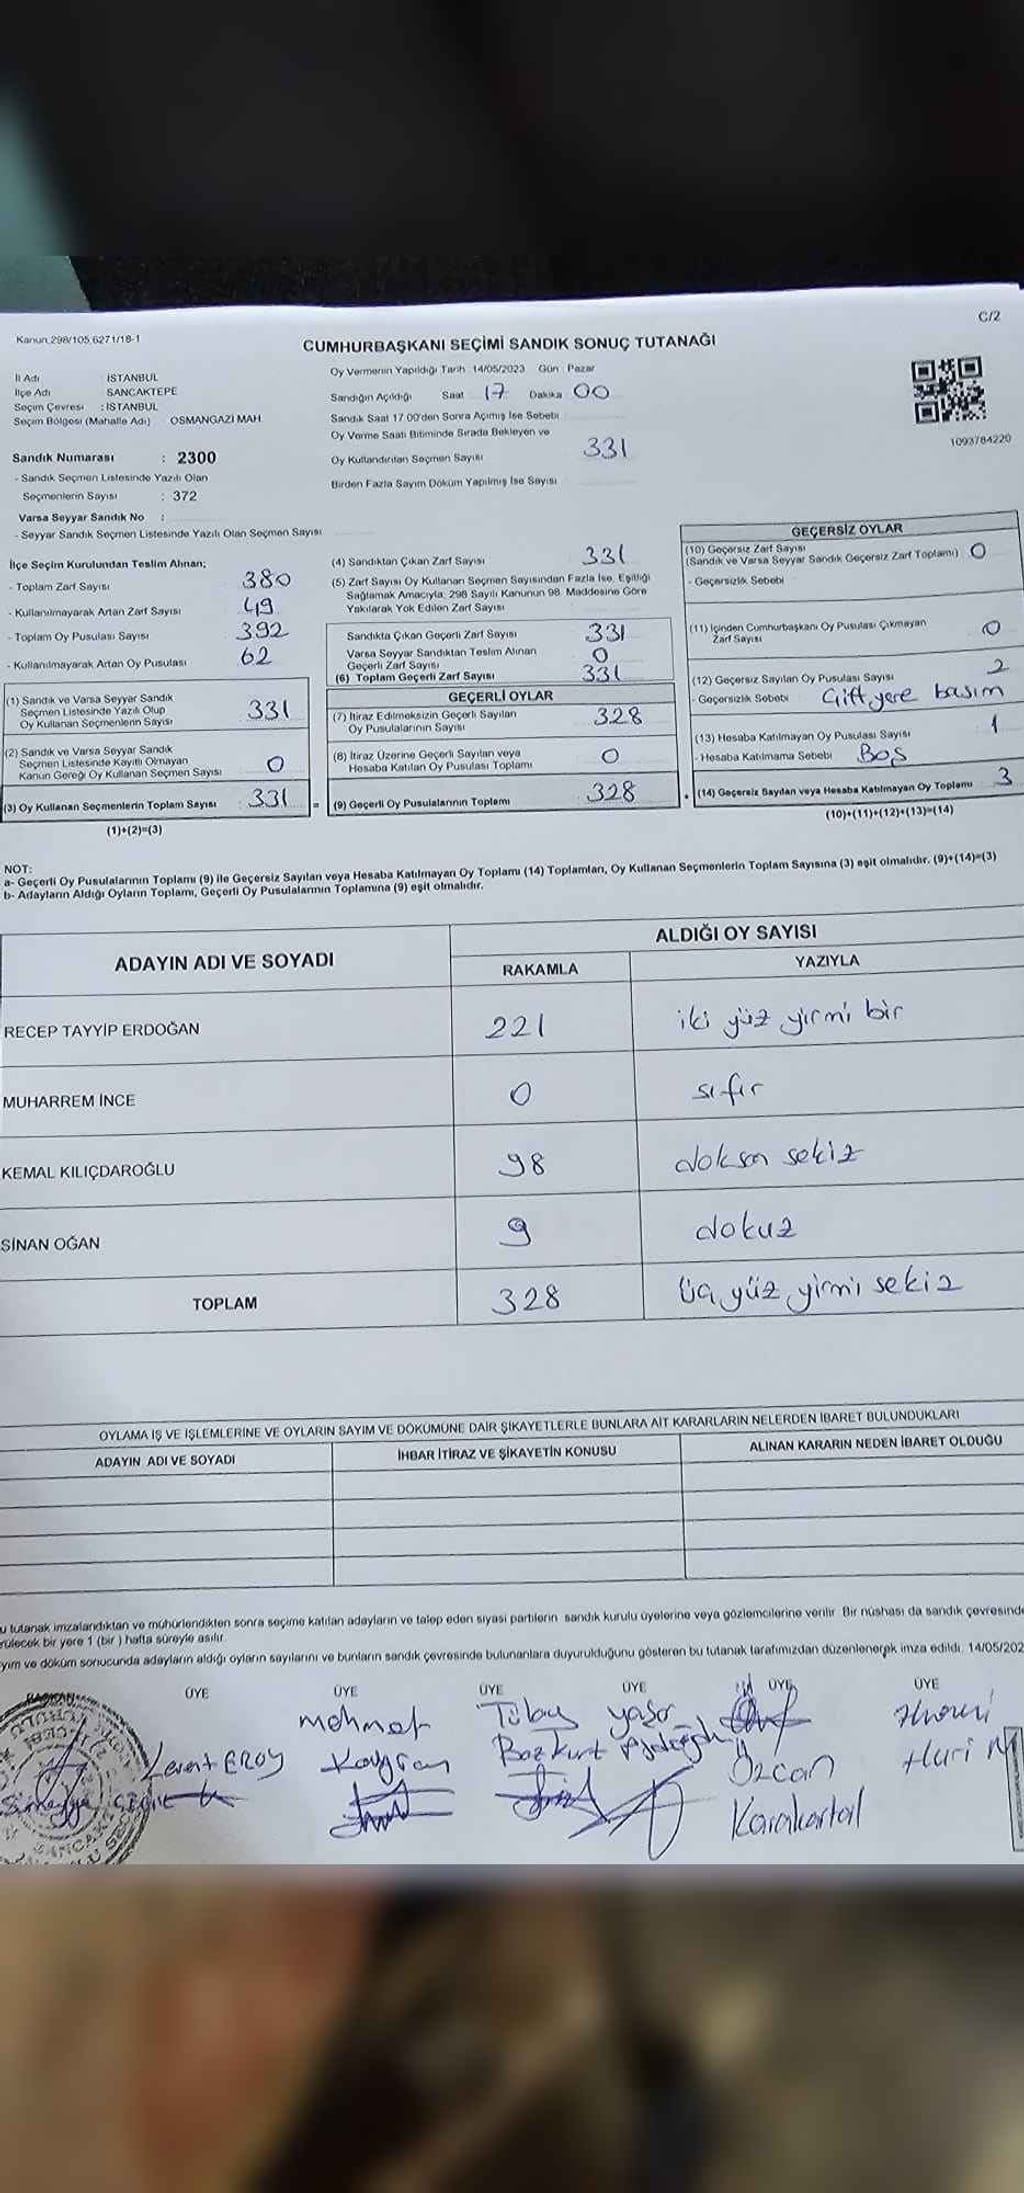 C/2
Kanun 298/105 6271/18-1
CUMHURBAŞKANI SEÇİMİ SANDIK SONUÇ TUTANAĞI
İl Adı İSTANBUL
İlçe Adı SANCAKTEPE
Seçim Çevresi : İSTANBUL
Seçim Bölgesi (Mahalle Adı) OSMANGAZİ MAH
Sandık Numarası : 2300
- Sandık Seçmen Listesinde Yazılı Olan
Seçmenlerin Sayısı : 372
Varsa Seyyar Sandık No :
- Seyyar Sandık Seçmen Listesinde Yazılı Olan Seçmen Sayısı
Oy Vermenin Yapıldığı Tarih 14/05/2023 Gün : Pazar
Sandığın Açıldığı Saat 17 Dakika 00
Sandık Saat 17 00'den Sonra Açımış İse Sebebi
Oy Verme Saati Bitiminde Sırada Bekleyen ve
Oy Kullandırılan Seçmen Sayısı 331
Birden Fazla Sayım Döküm Yapılmış İse Sayısı
1093784220
İlçe Seçim Kurulundan Teslim Alınan;
- Toplam Zarf Sayısı 380
- Kullanılmayarak Artan Zarf Sayısı 49
- Toplam Oy Pusulası Sayısı 392
- Kullanılmayarak Artan Oy Pusulası 62
(1) Sandık ve Varsa Seyyar Sandık
Seçmen Listesinde Yazılı Olup
Oy Kullanan Seçmenlerin Sayısı 331
(2) Sandık ve Varsa Seyyar Sandık
Seçmen Listesinde Kayıtlı Olmayan
Kanun Gereği Oy Kullanan Seçmen Sayısı 0
(3) Oy Kullanan Seçmenlerin Toplam Sayısı 331 =
(1)+(2)=(3)
(4) Sandıktan Çıkan Zarf Sayısı 331
(5) Zarf Sayısı Oy Kullanan Seçmen Sayısından Fazla İse, Eşitliği
Sağlamak Amacıyla, 298 Sayılı Kanunun 98. Maddesine Göre
Yakılarak Yok Edilen Zarf Sayısı
Sandıkta Çıkan Geçerli Zarf Sayısı 331
Varsa Seyyar Sandıktan Teslim Alınan
Geçerli Zarf Sayısı 0
(6) Toplam Geçerli Zarf Sayısı 331
GEÇERLİ OYLAR
(7) İtiraz Edilmeksizin Geçerli Sayılan
Oy Pusulalarının Sayısı 328
(8) İtiraz Üzerine Geçerli Sayılan veya
Hesaba Katılan Oy Pusulası Toplamı 0
(9) Geçerli Oy Pusulalarının Toplamı 328
GEÇERSİZ OYLAR
(10) Geçersiz Zarf Sayısı
(Sandık ve Varsa Seyyar Sandık Geçersiz Zarf Toplamı) 0
- Geçersizlik Sebebi
(11) İçinden Cumhurbaşkanı Oy Pusulası Çıkmayan
Zarf Sayısı 0
(12) Geçersiz Sayılan Oy Pusulası Sayısı 2
- Geçersizlik Sebebi Çift yere basım
(13) Hesaba Katılmayan Oy Pusulası Sayısı 1
- Hesaba Katılmama Sebebi Boş
(14) Geçersiz Sayılan veya Hesaba Katılmayan Oy Toplamı 3
(10)+(11)+(12)+(13)=(14)
NOT:
a- Geçerli Oy Pusulalarının Toplamı (9) ile Geçersiz Sayılan veya Hesaba Katılmayan Oy Toplamı (14) Toplamları, Oy Kullanan Seçmenlerin Toplam Sayısına (3) eşit olmalıdır. (9)+(14)=(3)
b- Adayların Aldığı Oyların Toplamı, Geçerli Oy Pusulalarının Toplamına (9) eşit olmalıdır.
ADAYIN ADI VE SOYADI ALDIĞI OY SAYISI
RAKAMLA YAZIYLA
RECEP TAYYİP ERDOĞAN 221 iki yüz yirmi bir
MUHARREM İNCE 0 sıfır
KEMAL KILIÇDAROĞLU 98 doksan sekiz
SİNAN OĞAN 9 dokuz
TOPLAM 328 üç yüz yirmi sekiz
OYLAMA İŞ VE İŞLEMLERİNE VE OYLARIN SAYIM VE DÖKÜMÜNE DAİR ŞİKAYETLERLE BUNLARA AİT KARARLARIN NELERDEN İBARET BULUNDUKLARI
ADAYIN ADI VE SOYADI İHBAR İTİRAZ VE ŞİKAYETİN KONUSU ALINAN KARARIN NEDEN İBARET OLDUĞU
u tutanak imzalandıktan ve mühürlendikten sonra seçime katılan adayların ve talep eden siyasi partilerin sandık kurulu üyelerine veya gözlemcilerine verilir. Bir nüshası da sandık çevresinde
rülecek bir yere 1 (bir) hafta süreyle asılır.
yım ve döküm sonucunda adayların aldığı oyların sayılarını ve bunların sandık çevresinde bulunanlara duyurulduğunu gösteren bu tutanak tarafımızdan düzenlenerek imza edildi. 14/05/202
BAŞKAN ÜYE ÜYE ÜYE ÜYE ÜYE ÜYE
Mehmet Tülay yaşar
Levent EROY Kaygran Bozkurt Özcan Huri
Karakartal